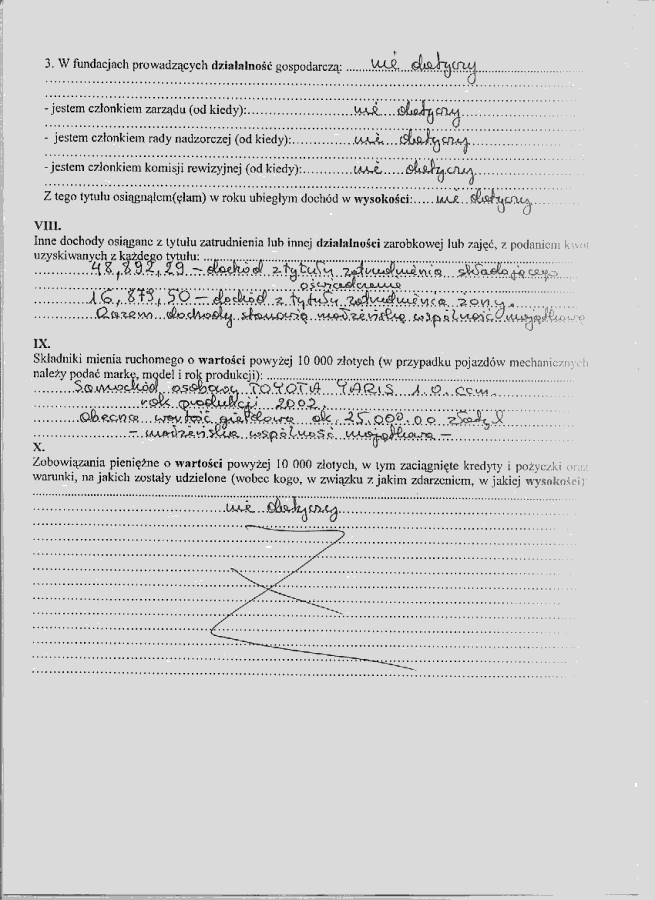 3. W fundacjach prowadzących działalność gospodarczą: nie dotyczy
- jestem członkiem zarządu (od kiedy): nie dotyczy
- jestem członkiem rady nadzorczej (od kiedy): nie dotyczy
- jestem członkiem komisji rewizyjnej (od kiedy): nie dotyczy
Z tego tytułu osiągnąłem(ęłam) w roku ubiegłym dochód w wysokości: nie dotyczy
VIII.
Inne dochody osiągane z tytułu zatrudnienia lub innej działalności zarobkowej lub zajęć, z podaniem kwot
uzyskiwanych z każdego tytułu:
48,892,29 – dochód z tytułu zatrudnienia składającego
oświadczenie
16,873,50 – dochód z tytułu zatrudnienia żony.
Razem dochody stanowią małżeńską wspólność majątkową
IX.
Składniki mienia ruchomego o wartości powyżej 10 000 złotych (w przypadku pojazdów mechanicznych
należy podać markę, model i rok produkcji):
Samochód osobowy TOYOTA YARIS 1.0. ccm.
rok produkcji 2002.
obecna wartość giełdowa ok. 25.000.00 złotych
– małżeńska wspólność majątkowa –
X.
Zobowiązania pieniężne o wartości powyżej 10 000 złotych, w tym zaciągnięte kredyty i pożyczki oraz
warunki, na jakich zostały udzielone (wobec kogo, w związku z jakim zdarzeniem, w jakiej wysokości)
nie dotyczy